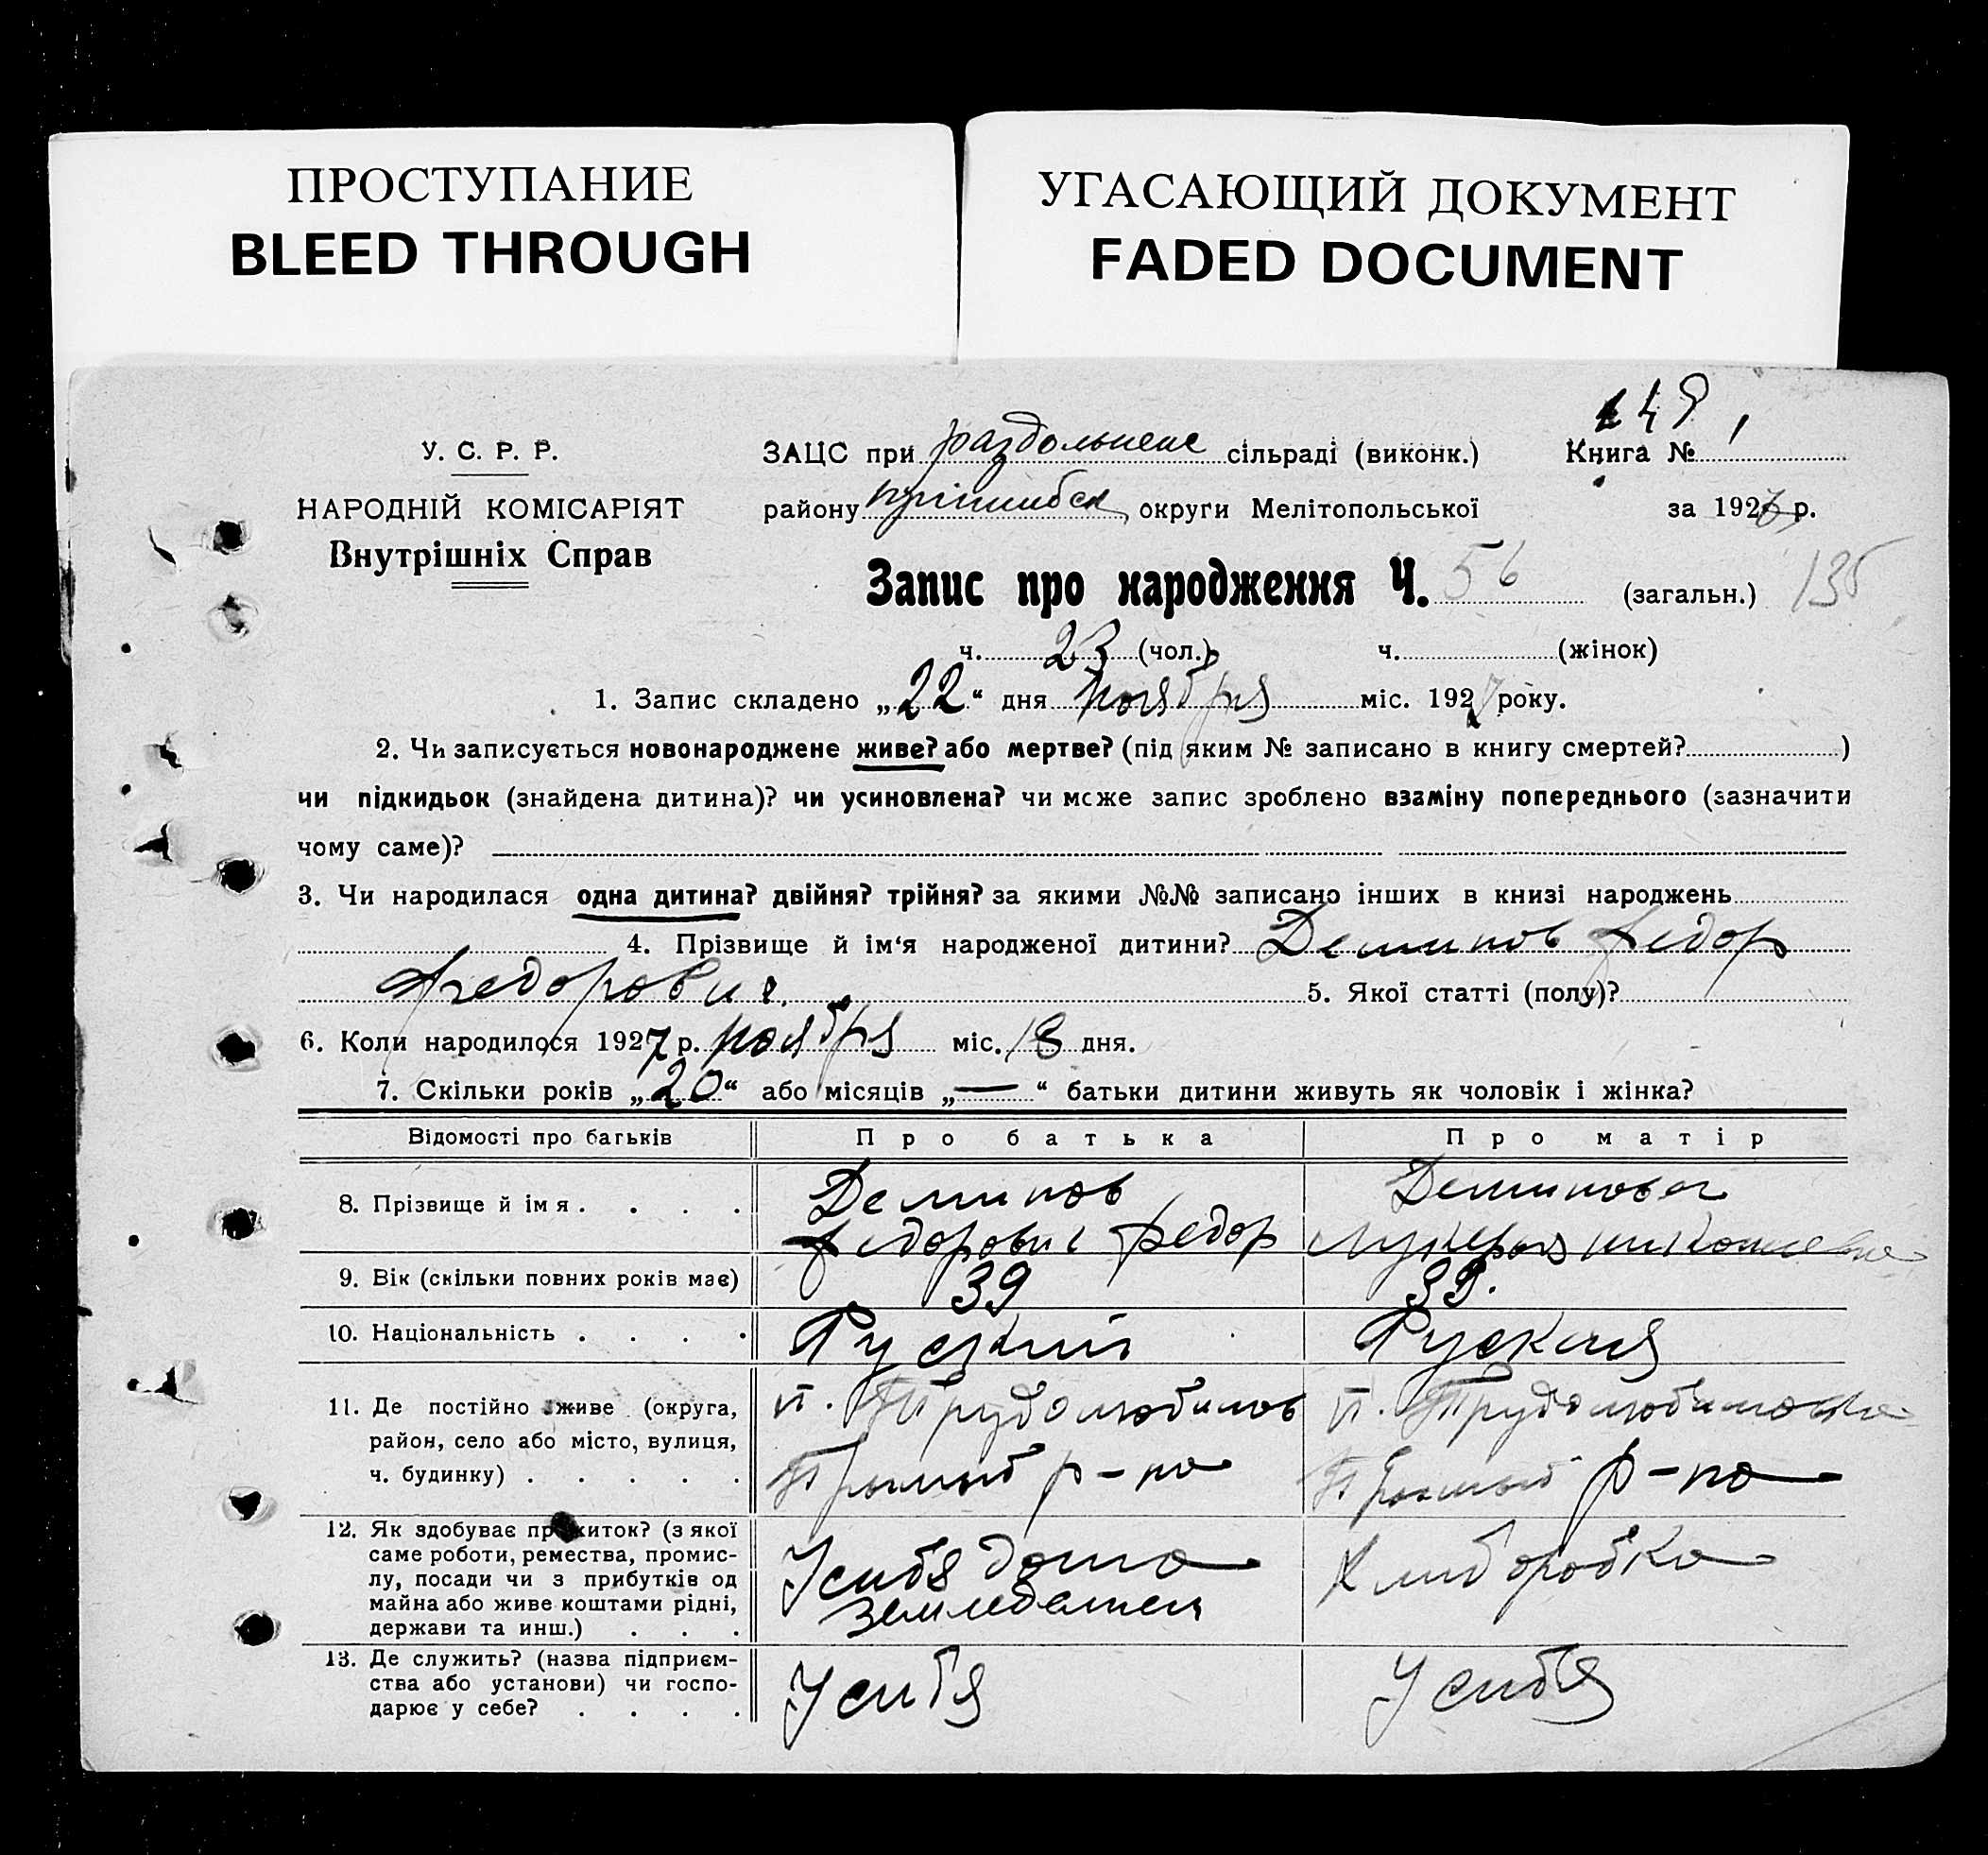 ПРОСТУПАНИЕ
BLEED THROUGH
УГАСАЮЩИЙ ДОКУМЕНТ
FADED DOCUMENT
У. С. Р. Р.
НАРОДНІЙ КОМІСАРІЯТ
Внутрішніх Справ
ЗАЦС при сільраді (виконк.) Книга №
району округи Мелітопольської за 192 р.
Запис про народження Ч. 56 (загальн.) 135
ч. 23 (чол.) ч. (жінок)
1. Запис складено „22“ дня ноября міс. 1927 року.
2. Чи записується новонароджене живе? або мертве? (під яким № записано в книгу смертей? )
чи підкидьок (знайдена дитина)? чи усиновлена? чи може запис зроблено взаміну попереднього (зазначити
чому саме)?
3. Чи народилася одна дитина? двійня? трійня? за якими №№ записано інших в книзі народжень
4. Прізвище й ім'я народженої дитини? Деминов Федор
Федорович. 5. Якої статті (полу)?
6. Коли народилося 1927 р. ноября міс. 18 дня.
7. Скільки років „20“ або місяців „—“ батьки дитини живуть як чоловік і жінка?
Відомості про батьків Про батька Про матір
8. Прізвище й ім я . . . . Деминов Деминова
Федорович Федор
9. Вік (скільки повних років має) 39 39.
10. Національність . . . . Руский Руская
11. Де постійно живе (округа,
район, село або місто, вулиця,
ч. будинку) . . . . .
п. Трудолюбимов п. Трудолюбимовка
р-на р-на
12. Як здобуває прожиток? (з якої
саме роботи, ремества, промис-
лу, посади чи з прибутків од
майна або живе коштами рідні,
держави та инш.) . . .
Усибя дома
Хлиборобка
13. Де служить? (назва підприєм-
ства або установи) чи госпо-
дарює у себе? . . . .
Усибя Усибя